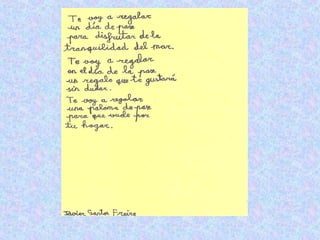 Te voy a regalar
un día de paz
para disfrutar de la
tranquilidad del mar.
Te voy a regalar
en el día de la paz
un regalo que te gustará
sin dudar.
Te voy a regalar
una paloma de paz
para que vuele por
tu hogar.
Javier Santos Freire